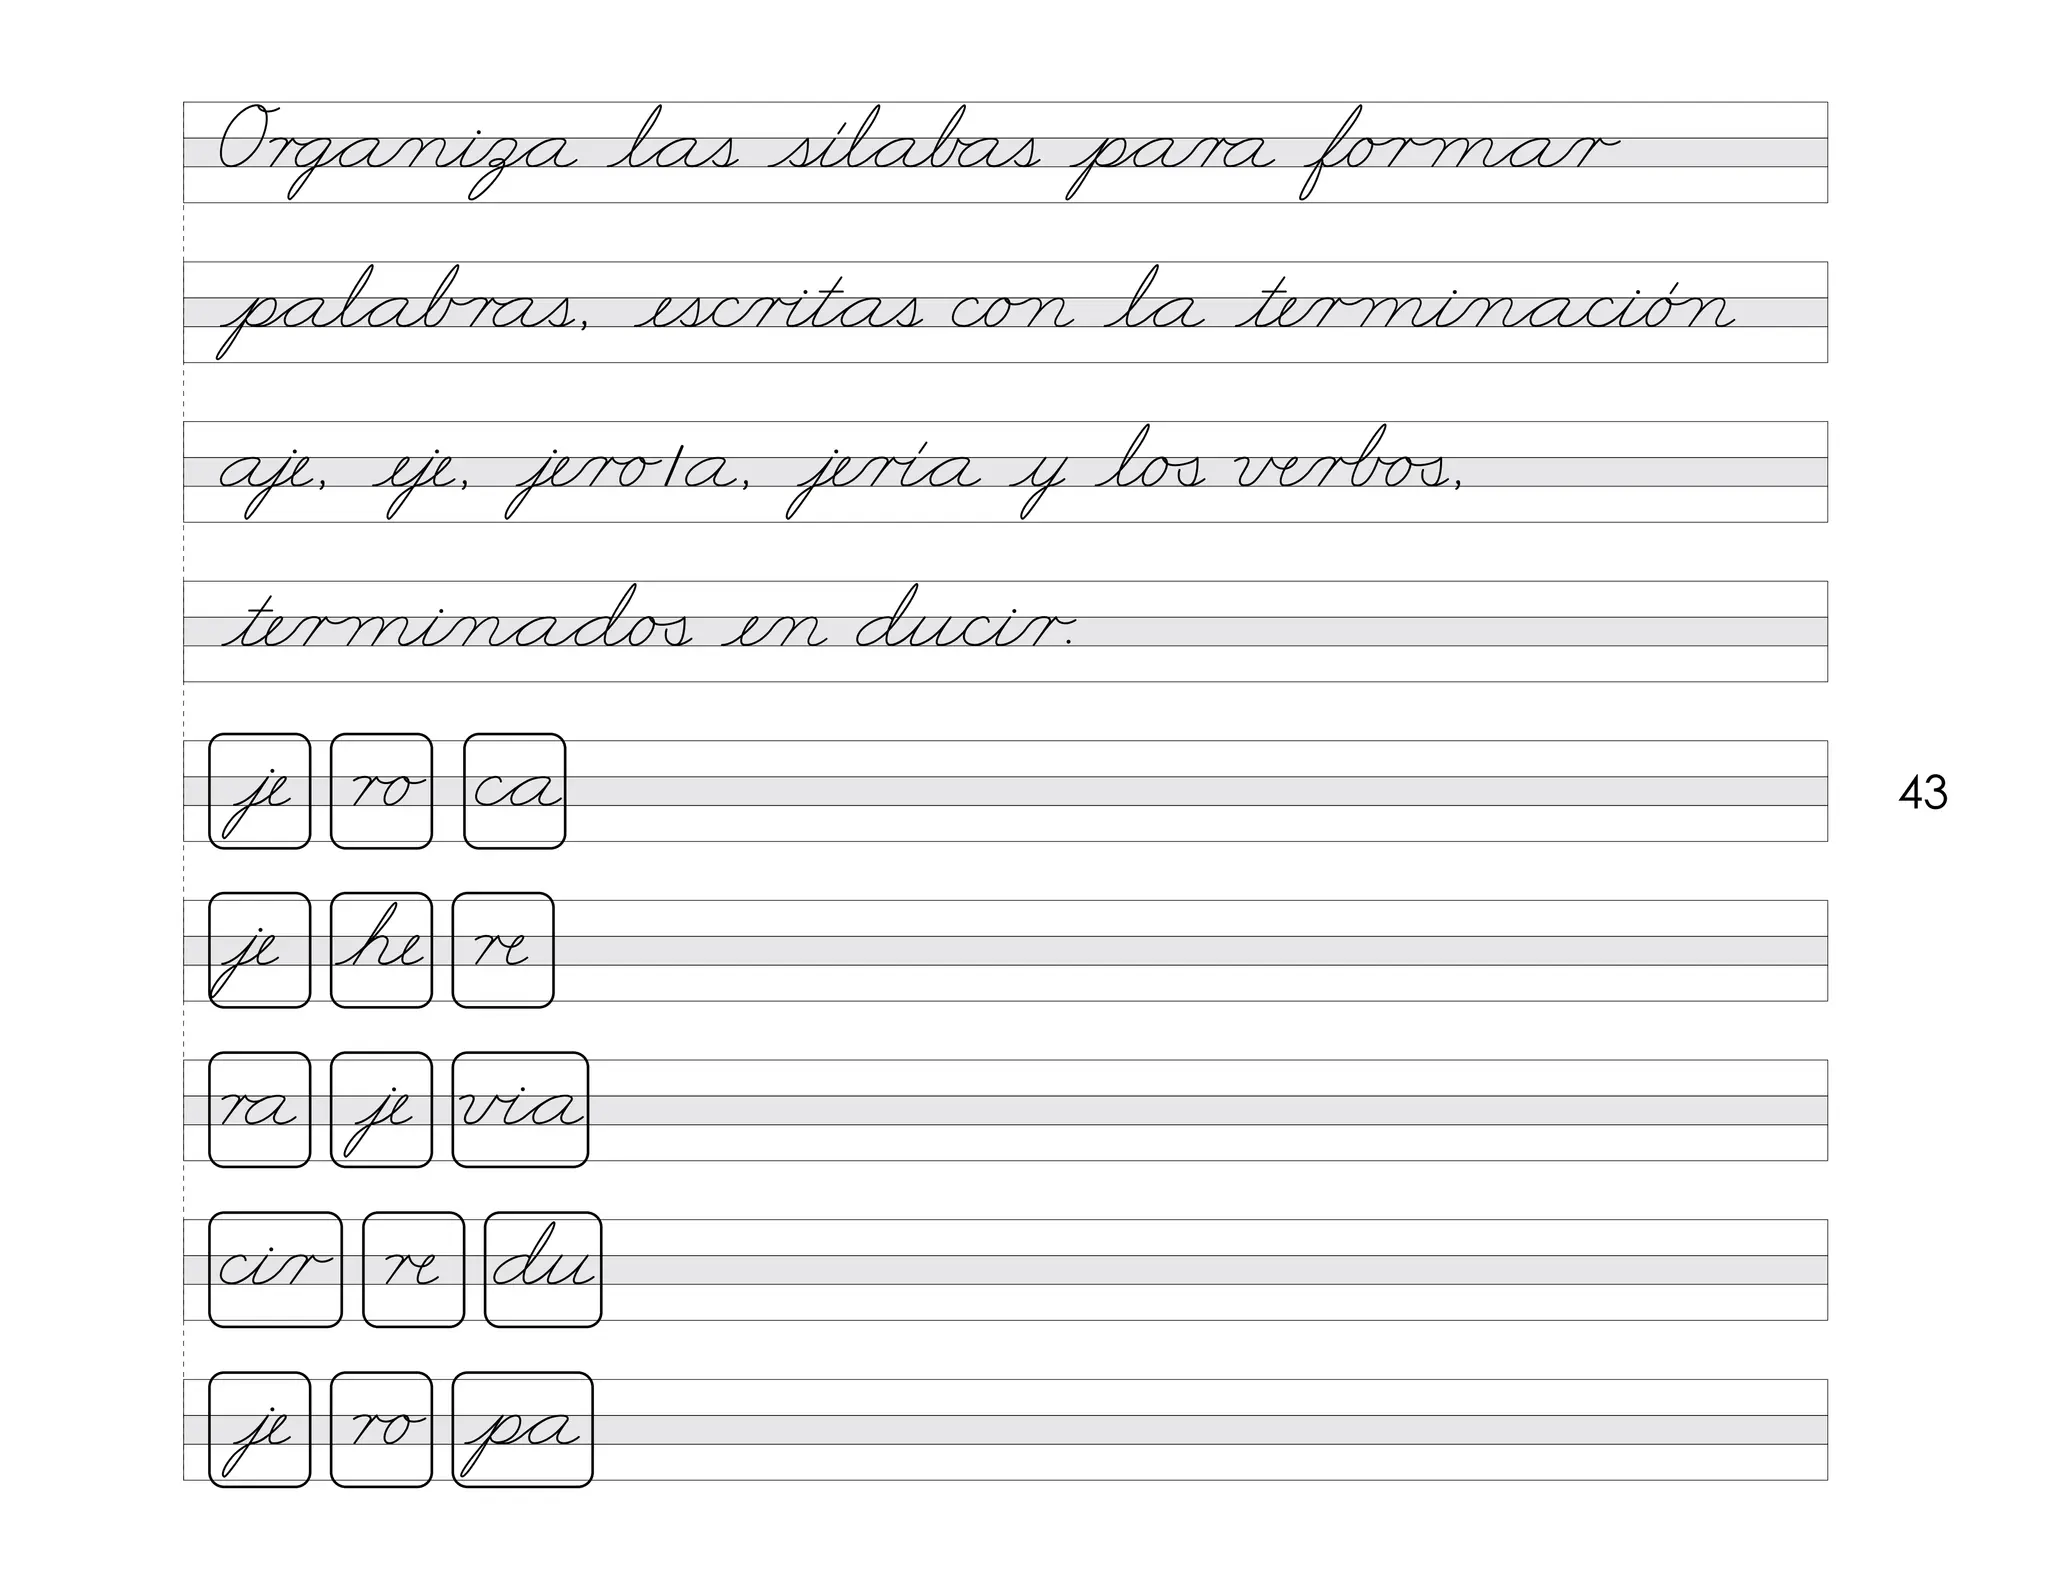 Organiza las sílabas para formar
palabras, escritas con la terminación
aje, eje, jero/a, jería y los verbos,
terminados en ducir.
je ro ca
43
je he re
ra je via
cir re du
je ro pa